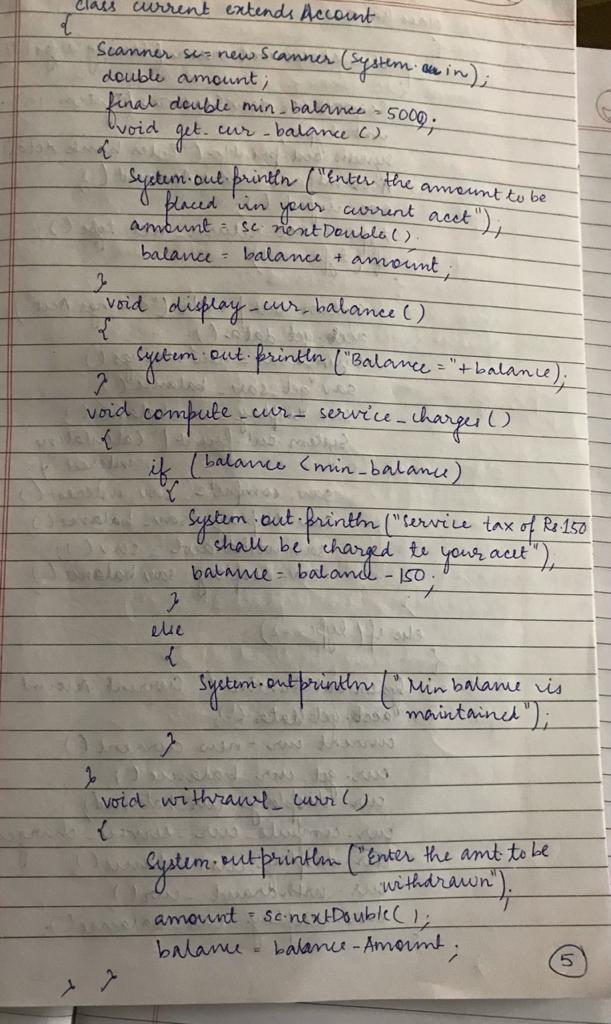 class current extends Account
{
Scanner sc=new Scanner (System.in);
double amount;
final double min_balance = 5000;
void get_cur_balance ()
{
System.out.println ("Enter the amount to be
placed in your current acct");
amount = sc.nextDouble();
balance = balance + amount;
}
void display_cur_balance ()
{
System.out.println ("Balance = "+balance);
}
void compute_cur_service_charges ()
{
if (balance < min_balance)
{
System.out.println ("Service tax of Rs.150
shall be charged to your acct");
balance = balance - 150;
}
else
{
System.out println ("Min balance is
maintained");
}
}
void withrawl_curr ()
{
System.out println ("Enter the amt to be
withdrawn");
amount = sc.nextDouble();
balance = balance - Amount;
} }
5